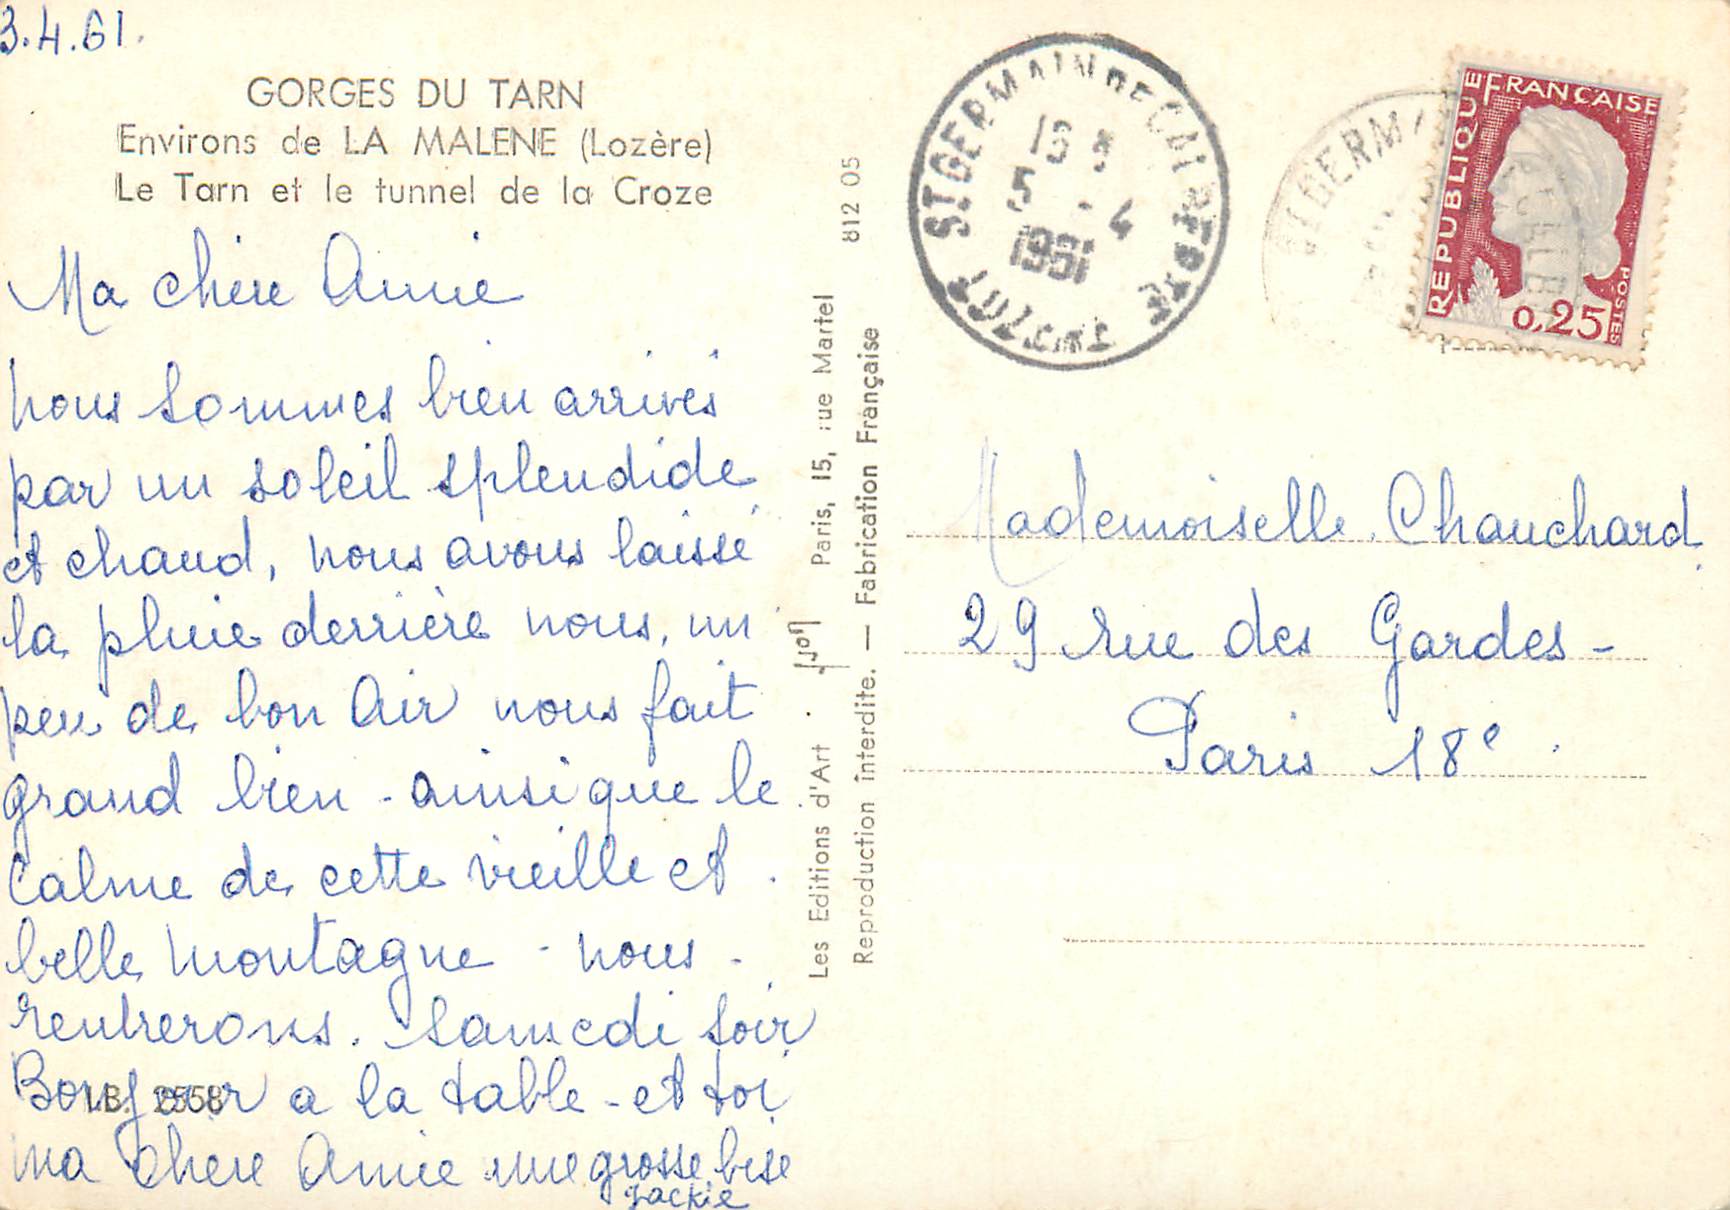 3.4.61.
GORGES DU TARN
Environs de LA MALENE (Lozère)
Le Tarn et le tunnel de la Croze
Ma chère Annie
nous sommes bien arrivés
par un soleil splendide
et chaud, nous avons laissé
la pluie derrière nous, un
peu de bon air nous fait
grand bien - ainsi que le
calme de cette vieille et
belle montagne - nous
rentrerons. Samedi soir
Bonjour a la table - et toi
ma chère Annie une grosse bise
Jackie
I.B. 2558
Les Editions d'Art Yvon Paris, 15, rue Martel
Reproduction interdite. — Fabrication Française
812 05
ST GERMAIN DE CALBERTE
5 - 4
1961
LOZERE
ST GERMA
REPUBLIQUE FRANÇAISE
0,25
POSTES
Mademoiselle Chauchard
29 rue des Gardes -
Paris 18e